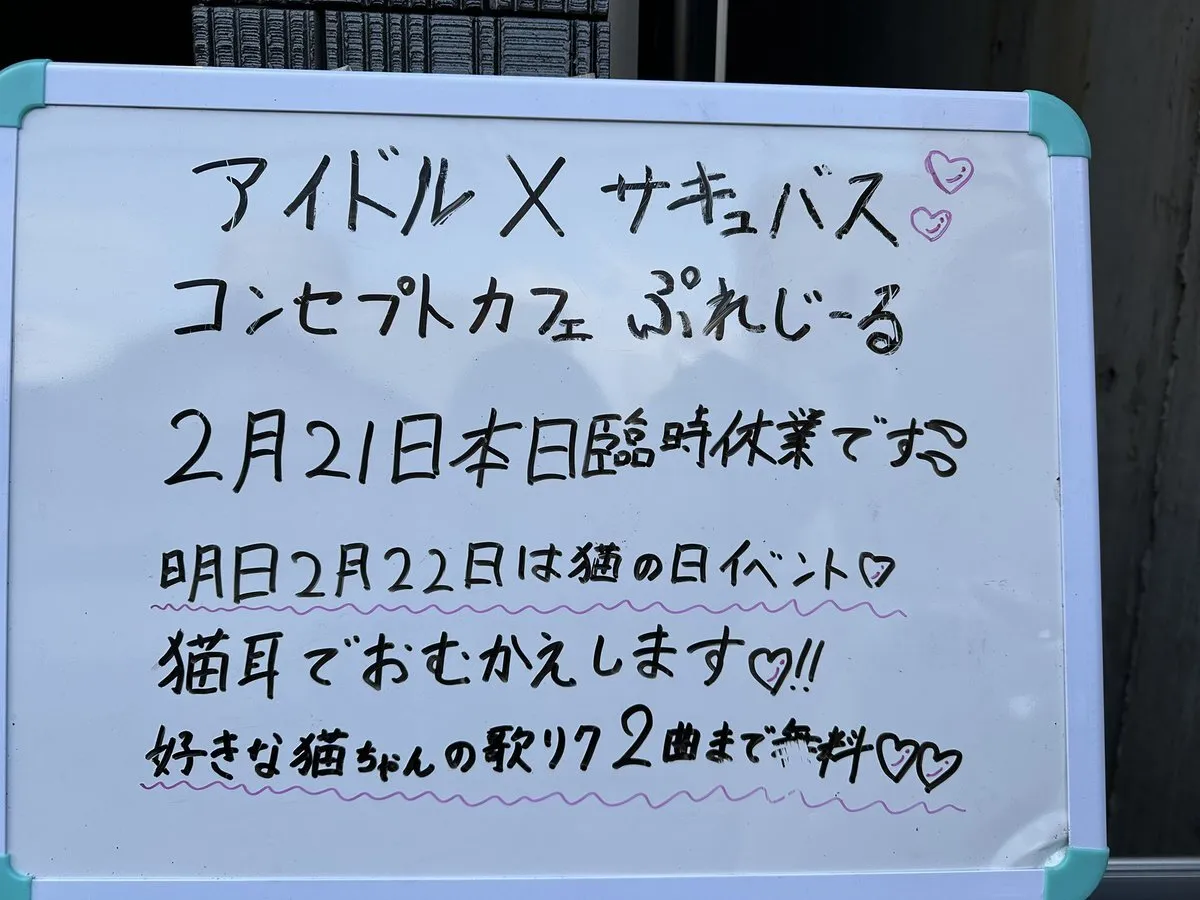 アイドル×サキュバス♡♡
コンセプトカフェ ぷれじーる
2月21日本日臨時休業です💦
明日2月22日は猫の日イベント♡
猫耳でおむかえします♡!!
好きな猫ちゃんの歌リク2曲まで無料♡♡